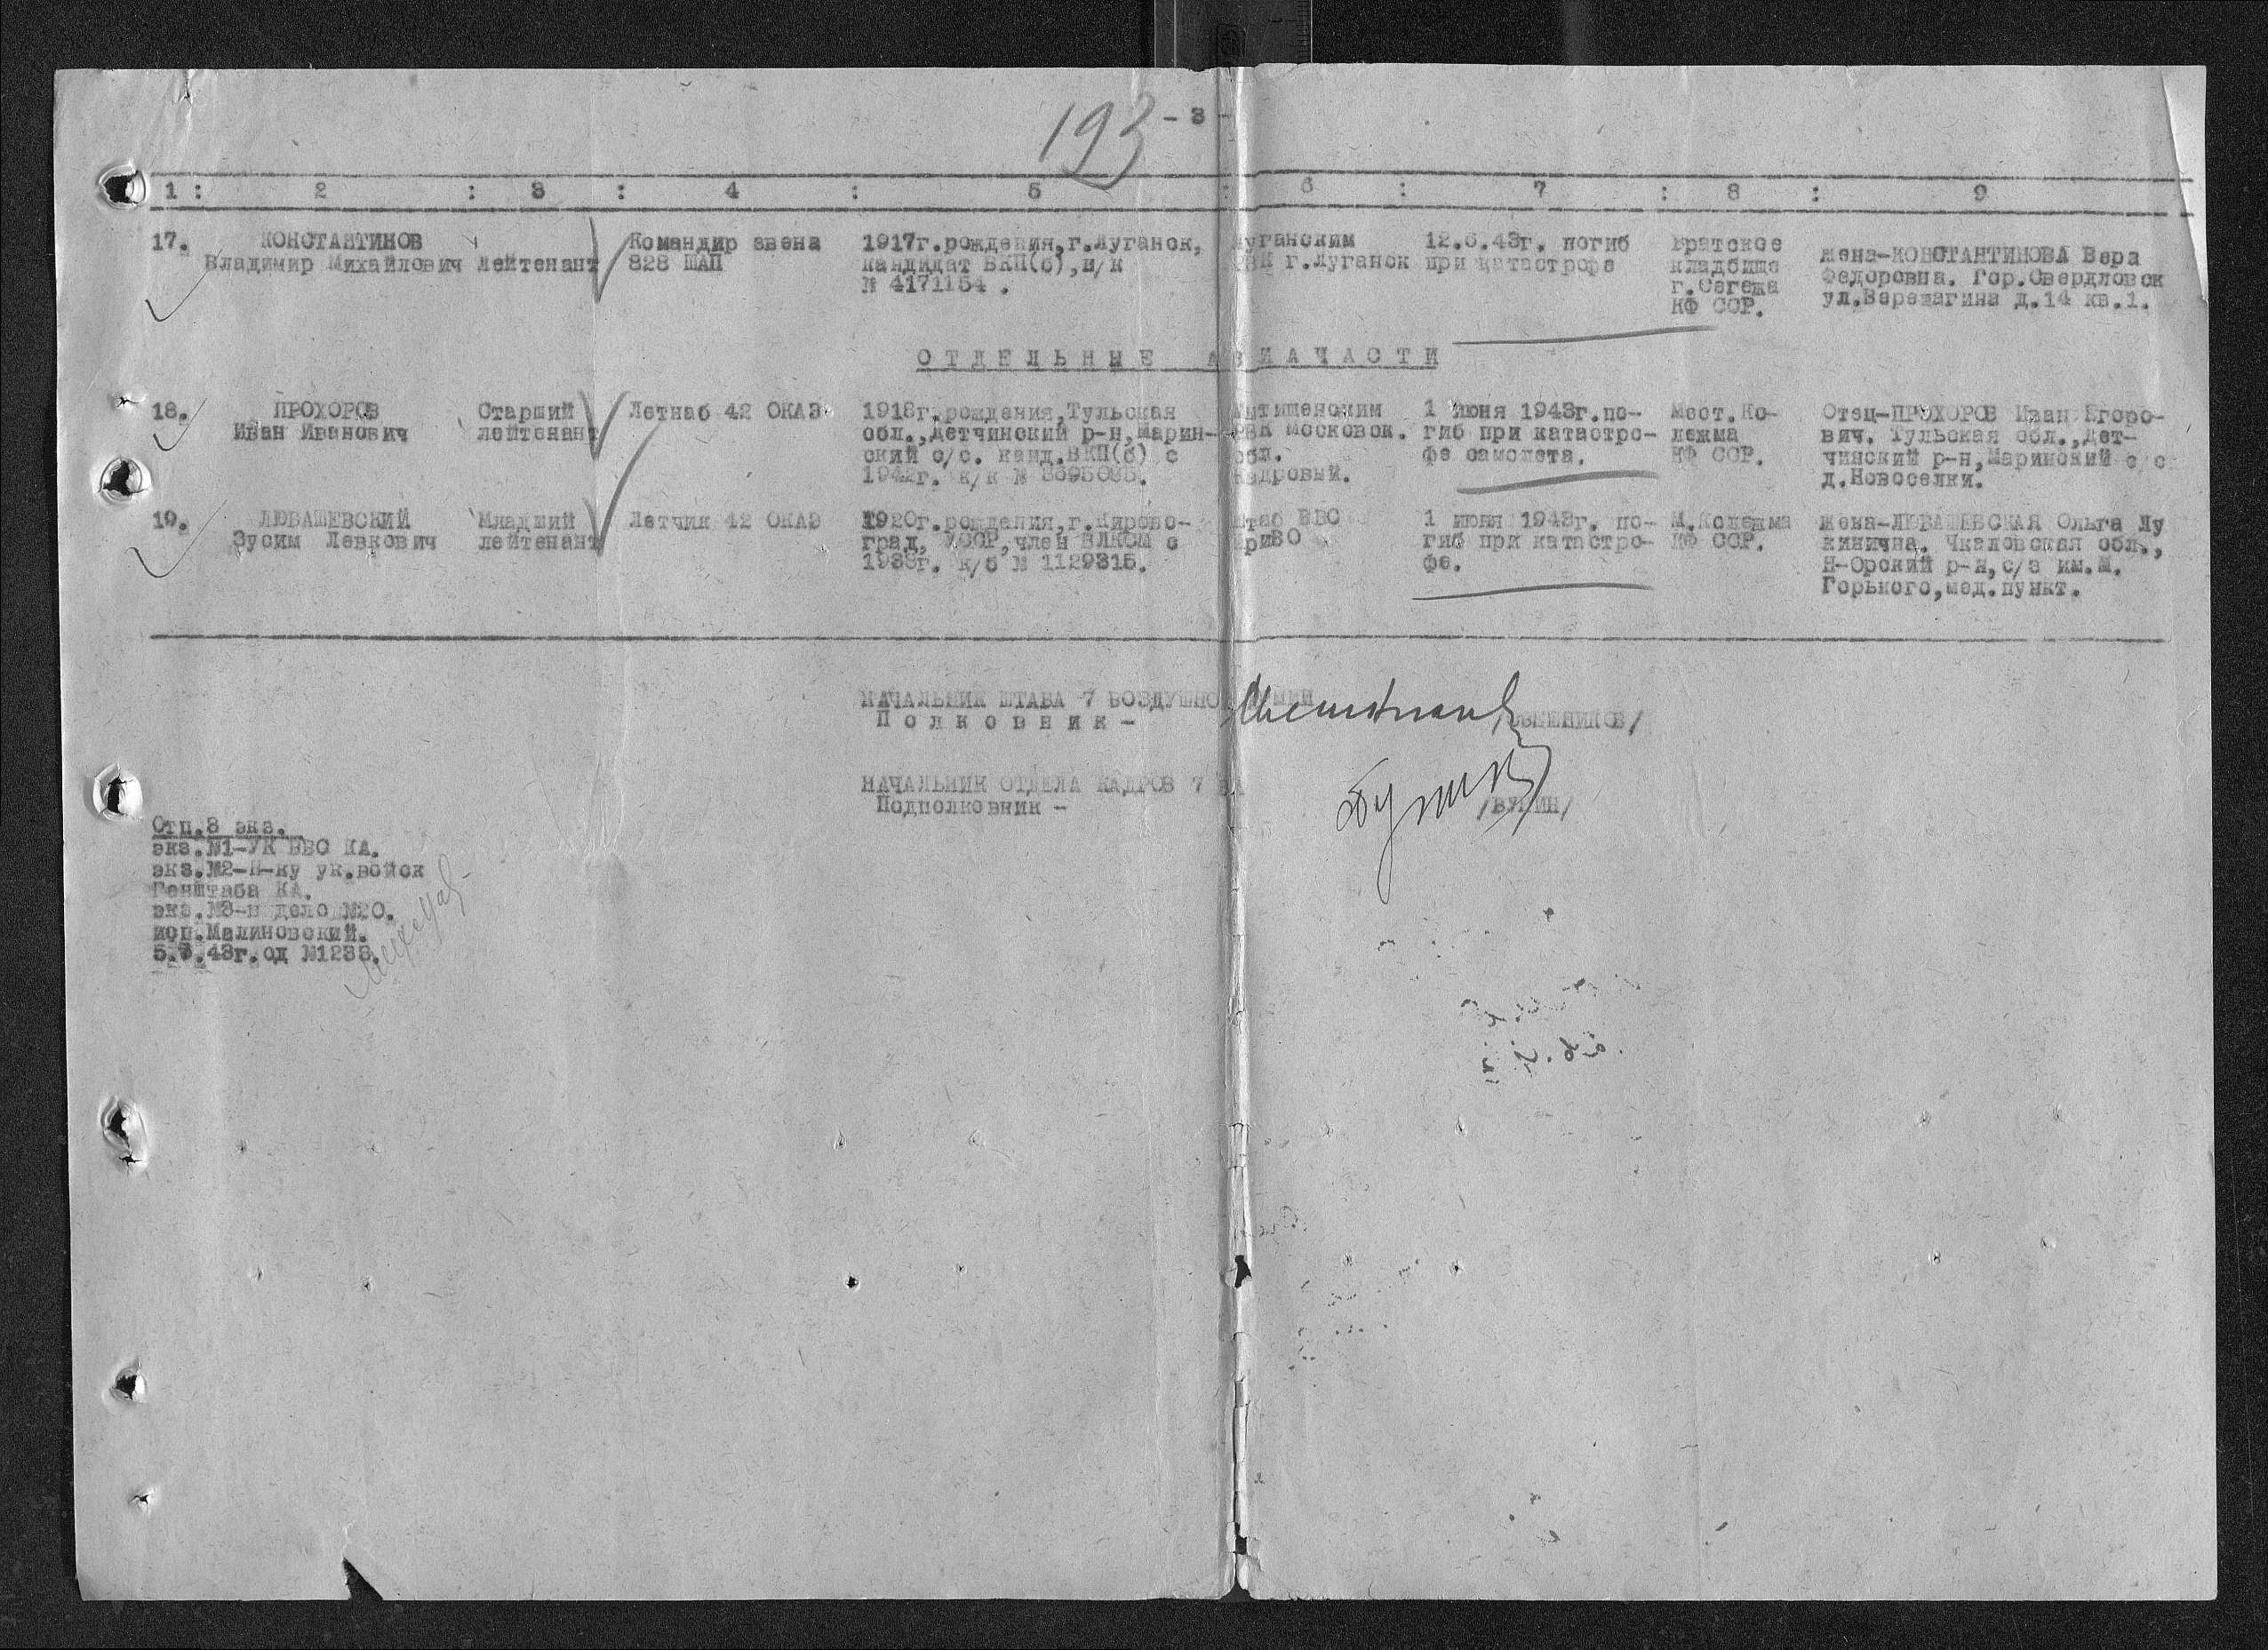 193
- 3 -
1 : 2 : 3 : 4 : 5 : 6 : 7 : 8 : 9
17. КОНСТАНТИНОВ
Владимир Михайлович
лейтенант
Командир звена
828 ШАП
1917г.рождения,г.Луганск,
кандидат ВКП(б),п/к
№ 4171154 .
Луганским
РВК г.Луганск
12.6.43г. погиб
при катастрофе
Братское
кладбище
г.Сегежа
КФ ССР.
Жена-КОНСТАНТИНОВА Вера
Федоровна. Гор.Свердловск
ул.Верещагина д.14 кв.1.
ОТДЕЛЬНЫЕ АВИАЧАСТИ
18. ПРОХОРОВ
Иван Иванович
Старший
лейтенант
Летнаб 42 ОКАЭ
1918г.рождения,Тульская
обл.,Детчинский р-н,Марин-
ский с/с. канд.ВКП(б) с
1942г. к/к №
Мытищенским
РВК Московск.
обл.
Кадровый.
1 июня 1943г.по-
гиб при катастро-
фе самолета.
Мест.Ко-
лежма
КФ ССР.
Отец-ПРОХОРОВ Иван Егоро-
вич. Тульская обл.,Дет-
чинский р-н,Маринский с/с
д.Новоселки.
19. ЛЮБАШЕВСКИЙ
Зусим Левкович
Младший
лейтенант
Летчик 42 ОКАЭ
1920г.рождения,г.Кирово-
град, УССР,член ВЛКСМ с
1938г. к/б № 1129315.
Штаб ВВС
ПриВО
1 июня 1943г. по-
гиб при катастро-
фе.
М.Колежма
КФ ССР.
Жена-ЛЮБАШЕВСКАЯ Ольга Лу
кинична. Чкаловская обл.,
Н-Орский р-н,с/з им.М.
Горького,мед.пункт.
НАЧАЛЬНИК ШТАБА 7 ВОЗДУШНОЙ АРМИИ
Полковник - /СВЕШНИКОВ/
НАЧАЛЬНИК ОТДЕЛА КАДРОВ 7 ВА
Подполковник - /БУКИН/
Отп.3 экз.
экз.№1-УК ВВС КА.
экз.№2-Н-ку ук.войск
Генштаба КА.
экз.№3-в дело №20.
исп.Малиновский.
5.7.43г.од №1233.